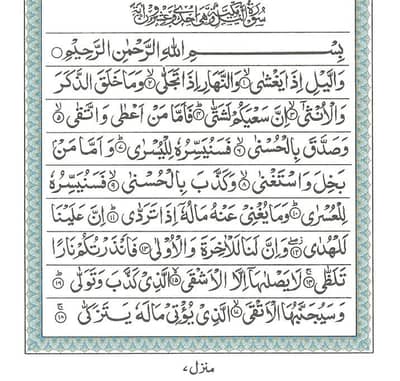 سُوْرَةُ الَّيْلِ مَكِّيَّةٌ وَّهِىَ اِحْدٰى وَّعِشْرُوْنَ اٰيَةً
بِسْمِ اللهِ الرَّحْمٰنِ الرَّحِيْمِ ○
وَالَّيْلِ اِذَا يَغْشٰى ۙ﴿۱﴾ وَالنَّهَارِ اِذَا تَجَلّٰى ۙ﴿۲﴾ وَمَا خَلَقَ الذَّكَرَ
وَالْاُنْثٰٓى ۙ﴿۳﴾ اِنَّ سَعْيَكُمْ لَشَتّٰى ۭ﴿۴﴾ فَاَمَّا مَنْ اَعْطٰى وَاتَّقٰى ۙ﴿۵﴾
وَصَدَّقَ بِالْحُسْنٰى ۙ﴿۶﴾ فَسَنُيَسِّرُهٗ لِلْيُسْرٰى ۭ﴿۷﴾ وَاَمَّا مَنْۢ
بَخِلَ وَاسْتَغْنٰى ۙ﴿۸﴾ وَكَذَّبَ بِالْحُسْنٰى ۙ﴿۹﴾ فَسَنُيَسِّرُهٗ
لِلْعُسْرٰى ۭ﴿۱۰﴾ وَمَا يُغْنِىْ عَنْهُ مَالُهٗٓ اِذَا تَرَدّٰى ۭ﴿۱۱﴾ اِنَّ عَلَيْنَا
لَلْهُدٰى ۖ﴿۱۲﴾ وَاِنَّ لَنَا لَلْاٰخِرَةَ وَالْاُوْلٰى ﴿۱۳﴾ فَاَنْذَرْتُكُمْ نَارًا
تَلَظّٰى ۚ﴿۱۴﴾ لَا يَصْلٰىهَآ اِلَّا الْاَشْقَى ۙ﴿۱۵﴾ الَّذِىْ كَذَّبَ وَتَوَلّٰى ۭ﴿۱۶﴾
وَسَيُجَنَّبُهَا الْاَتْقَى ۙ﴿۱۷﴾ الَّذِىْ يُؤْتِىْ مَالَهٗ يَتَزَكّٰى ۚ﴿۱۸﴾
منزل ۷